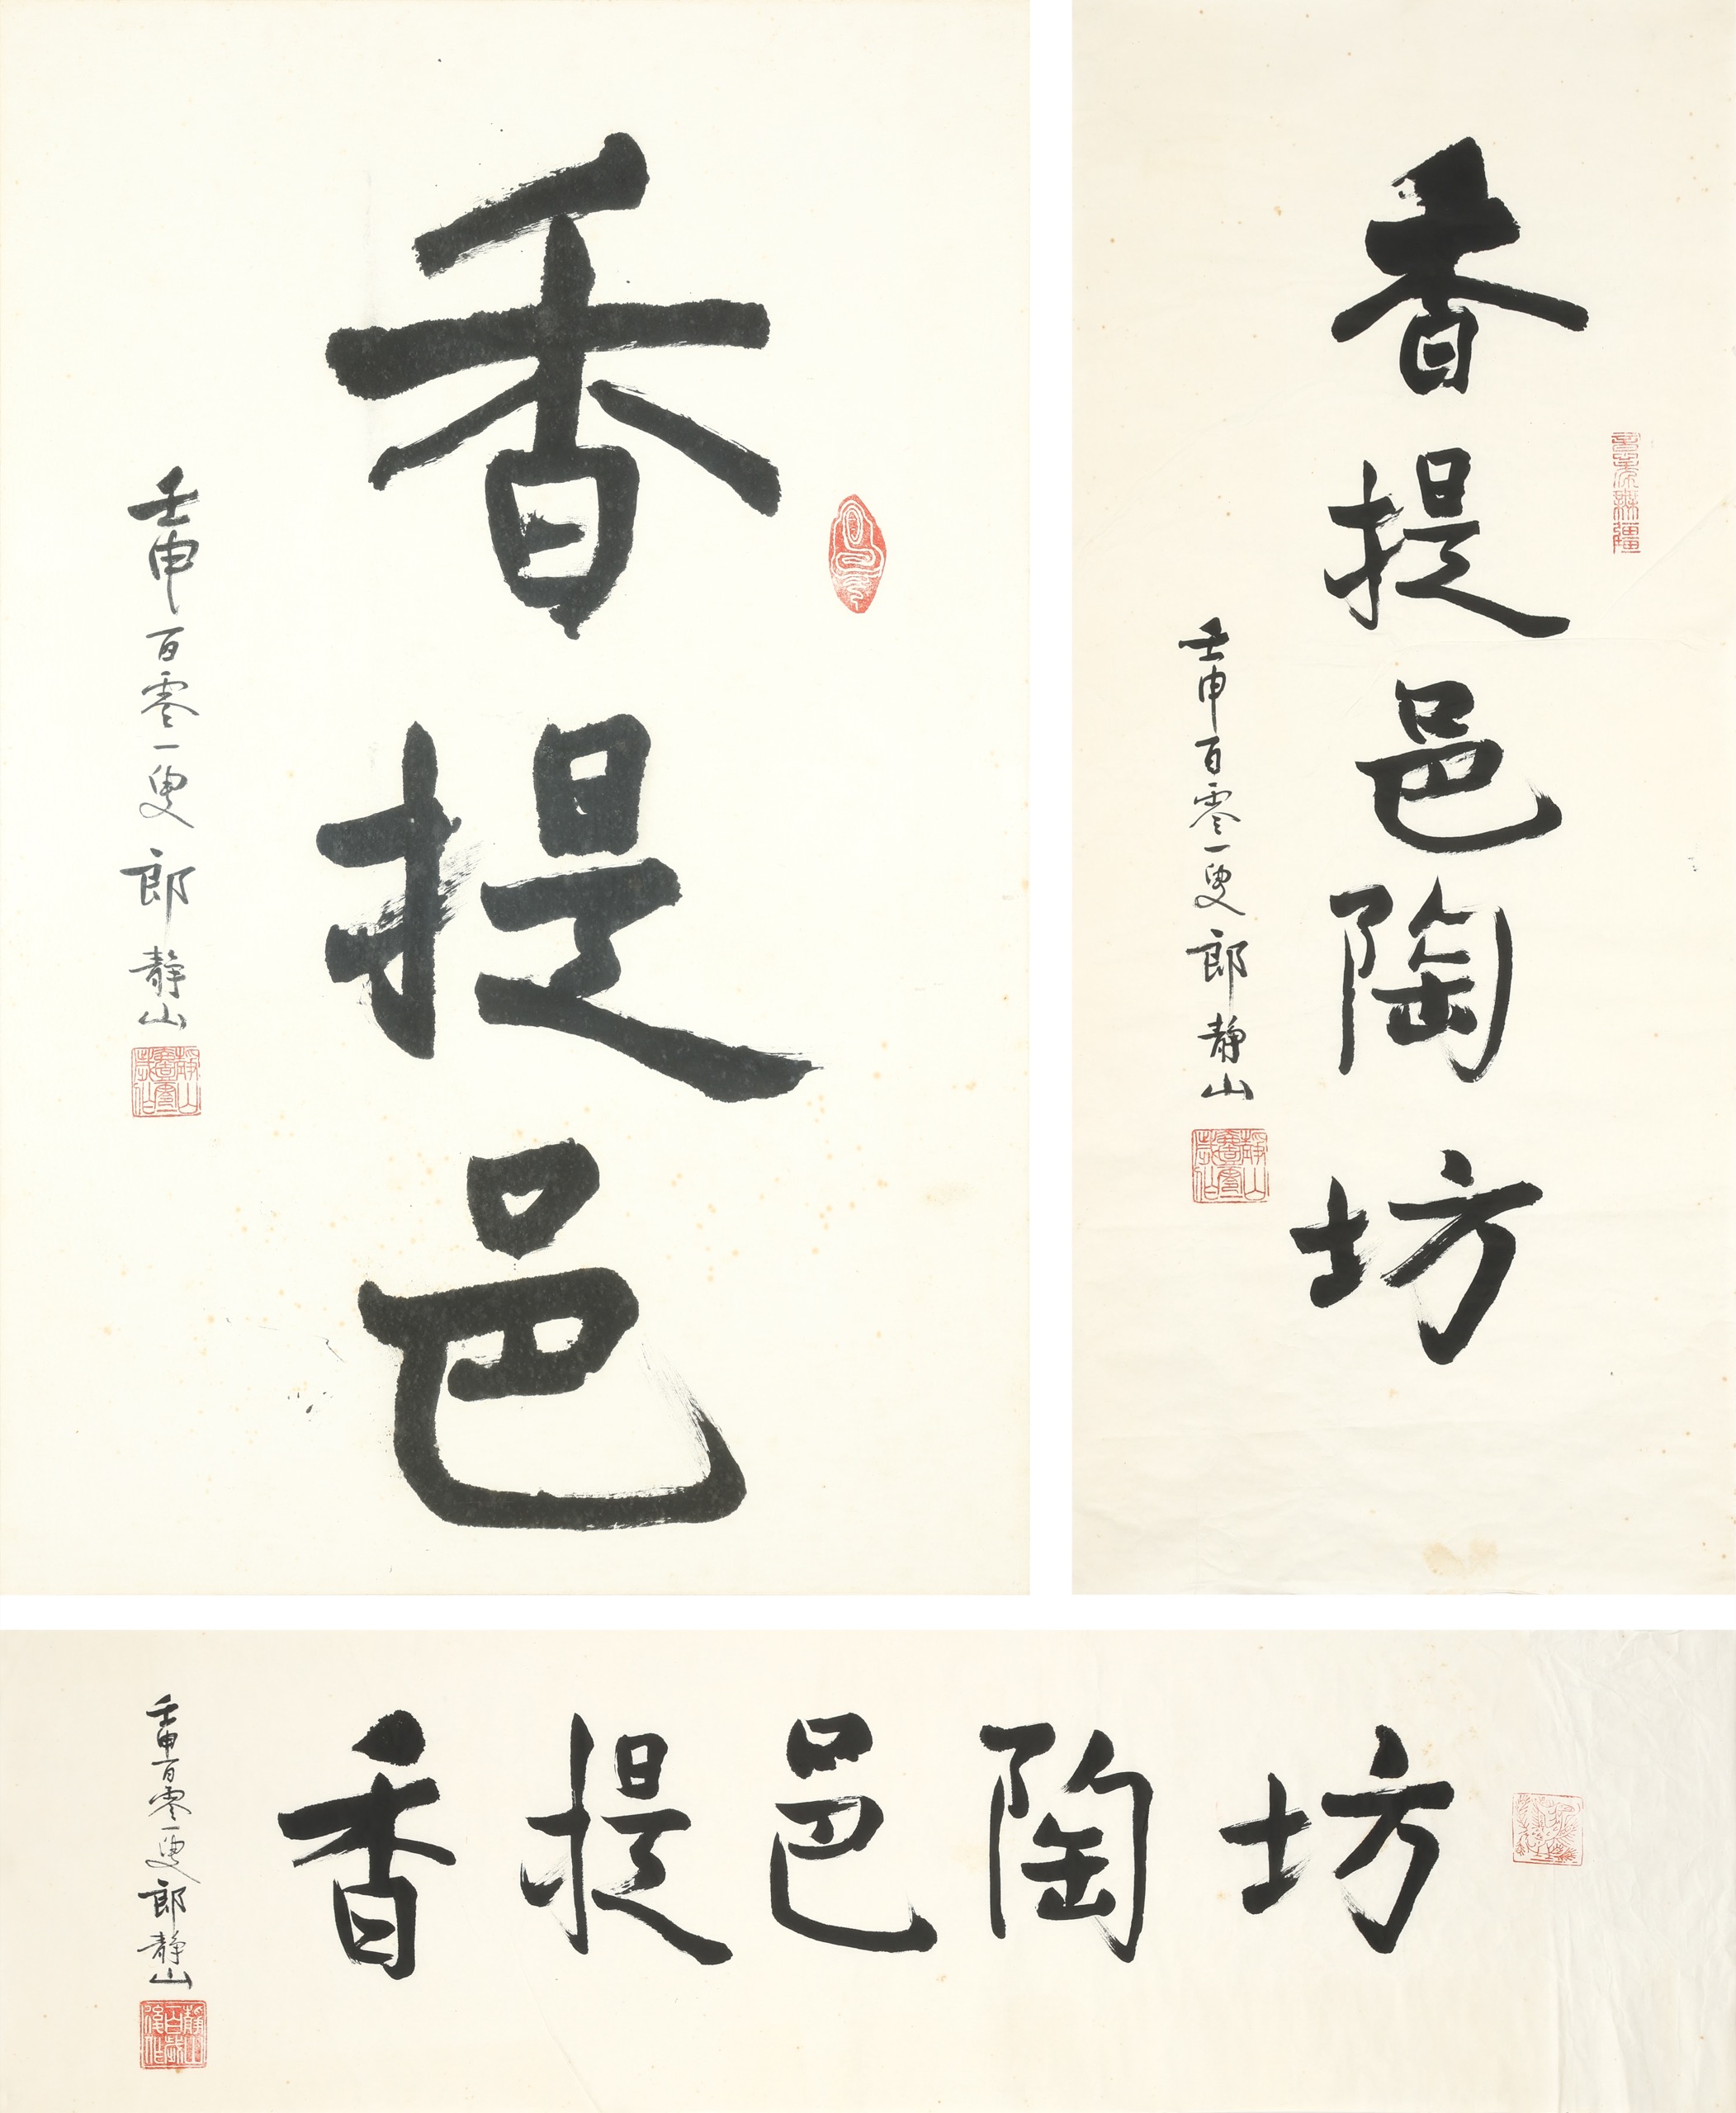 香提邑
壬申百零一叟郎靜山
香提邑陶坊
壬申百零一叟郎靜山
香提邑陶坊
壬申百零一叟郎靜山